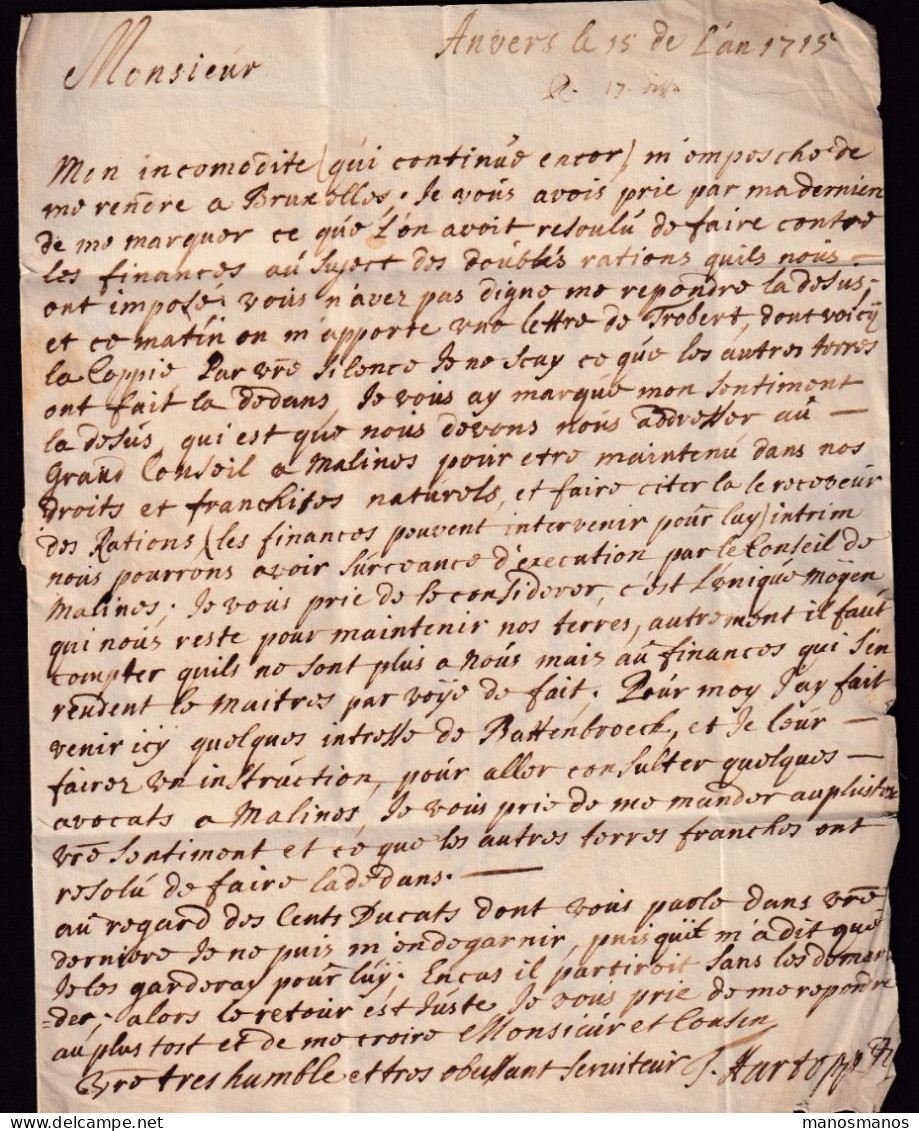 Anvers le 15 de L'an 1715
Monsieur
R. 17.
Mon incomodite (qui continue encor) m'emposche de
me rendre a Bruxelles; Je vous avois prie par ma dernien
de me marquer ce que L'on avoit resoulu de faire contre
les finances au Suject des doubles rations quils nous —
ont imposé; vous n'avez pas digne me repondre la desus;
et ce matin on m'apporte une lettre de Trobert, dont voicÿ
la Coppie Par vr̃e Silence Je ne scay ce que les autres terres
ont fait la dedans, Je vous ay marqué mon sentiment
la desus, qui est que nous devons nous addresser au —
Grand Conseil a Malines pour etre maintenu dans nos
droits et franchises naturels, et faire citer la le receveur
des Rations (les finances peuvent intervenir pour luy) intrim
nous pourrons avoir Surceance d'execution par le Conseil de
Malines; Je vous prie de le considerer, c'est L'unique moÿen
qui nous reste pour maintenir nos terres, autrement il faut
compter quils ne sont plus a nous mais au finances qui S'en
rendent le maitres par voÿe de fait; Pour moy J'ay fait
venir icy quelques intresse de Battenbroeck, et Je leur —
fairez un instruction, pour aller consulter quelques —
avocats a Malines, Je vous prie de me mander au plustot
vr̃e sentiment et ce que les autres terres franches ont
resolu de faire la dedans. —
au regard des Cents Ducats dont vous parle dans vr̃e
derniere Je ne puis m'endegarnir, puis quil m'a dit que
Je les garderay pour luÿ; En cas il partiroit sans les deman
=der; alors le retour est Juste Je vous prie de me repondre
au plus tost et de me croire Monsieur et Cousin
Vr̃e tres humble et tres obeissant Serviteur J. Hartopp
manosmanos